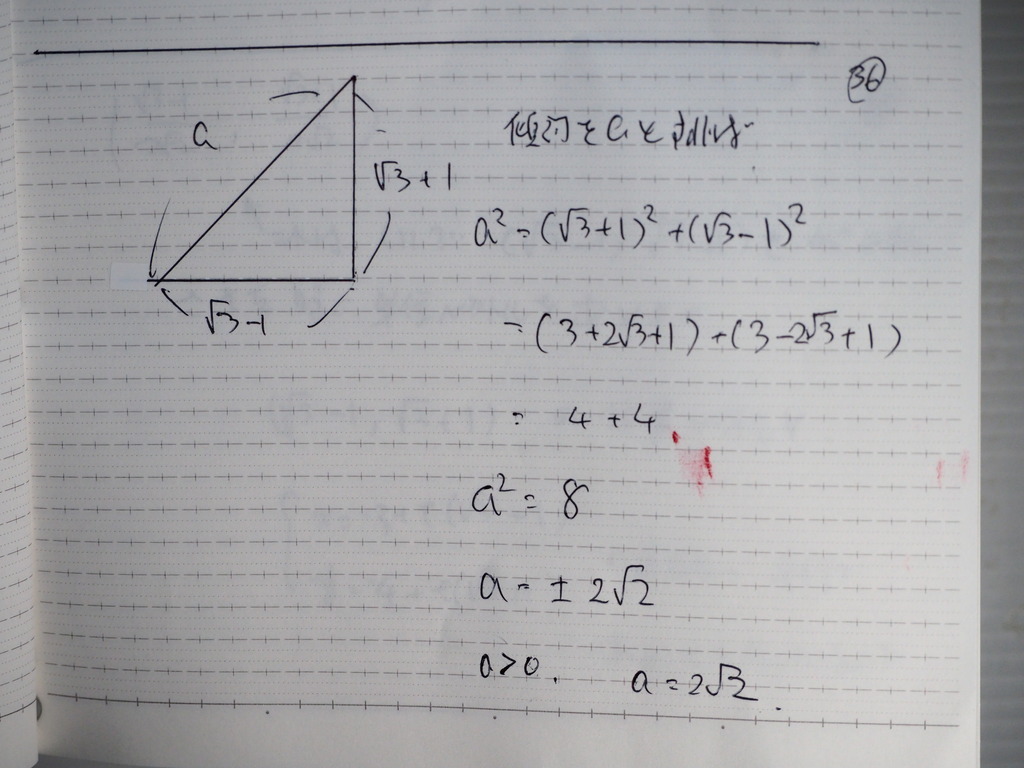 36
a
√3+1
√3-1
をaとすれば
a²=(√3+1)²+(√3-1)²
=(3+2√3+1)+(3-2√3+1)
= 4+4
a²= 8
a= ± 2√2
a>0. a=2√2.